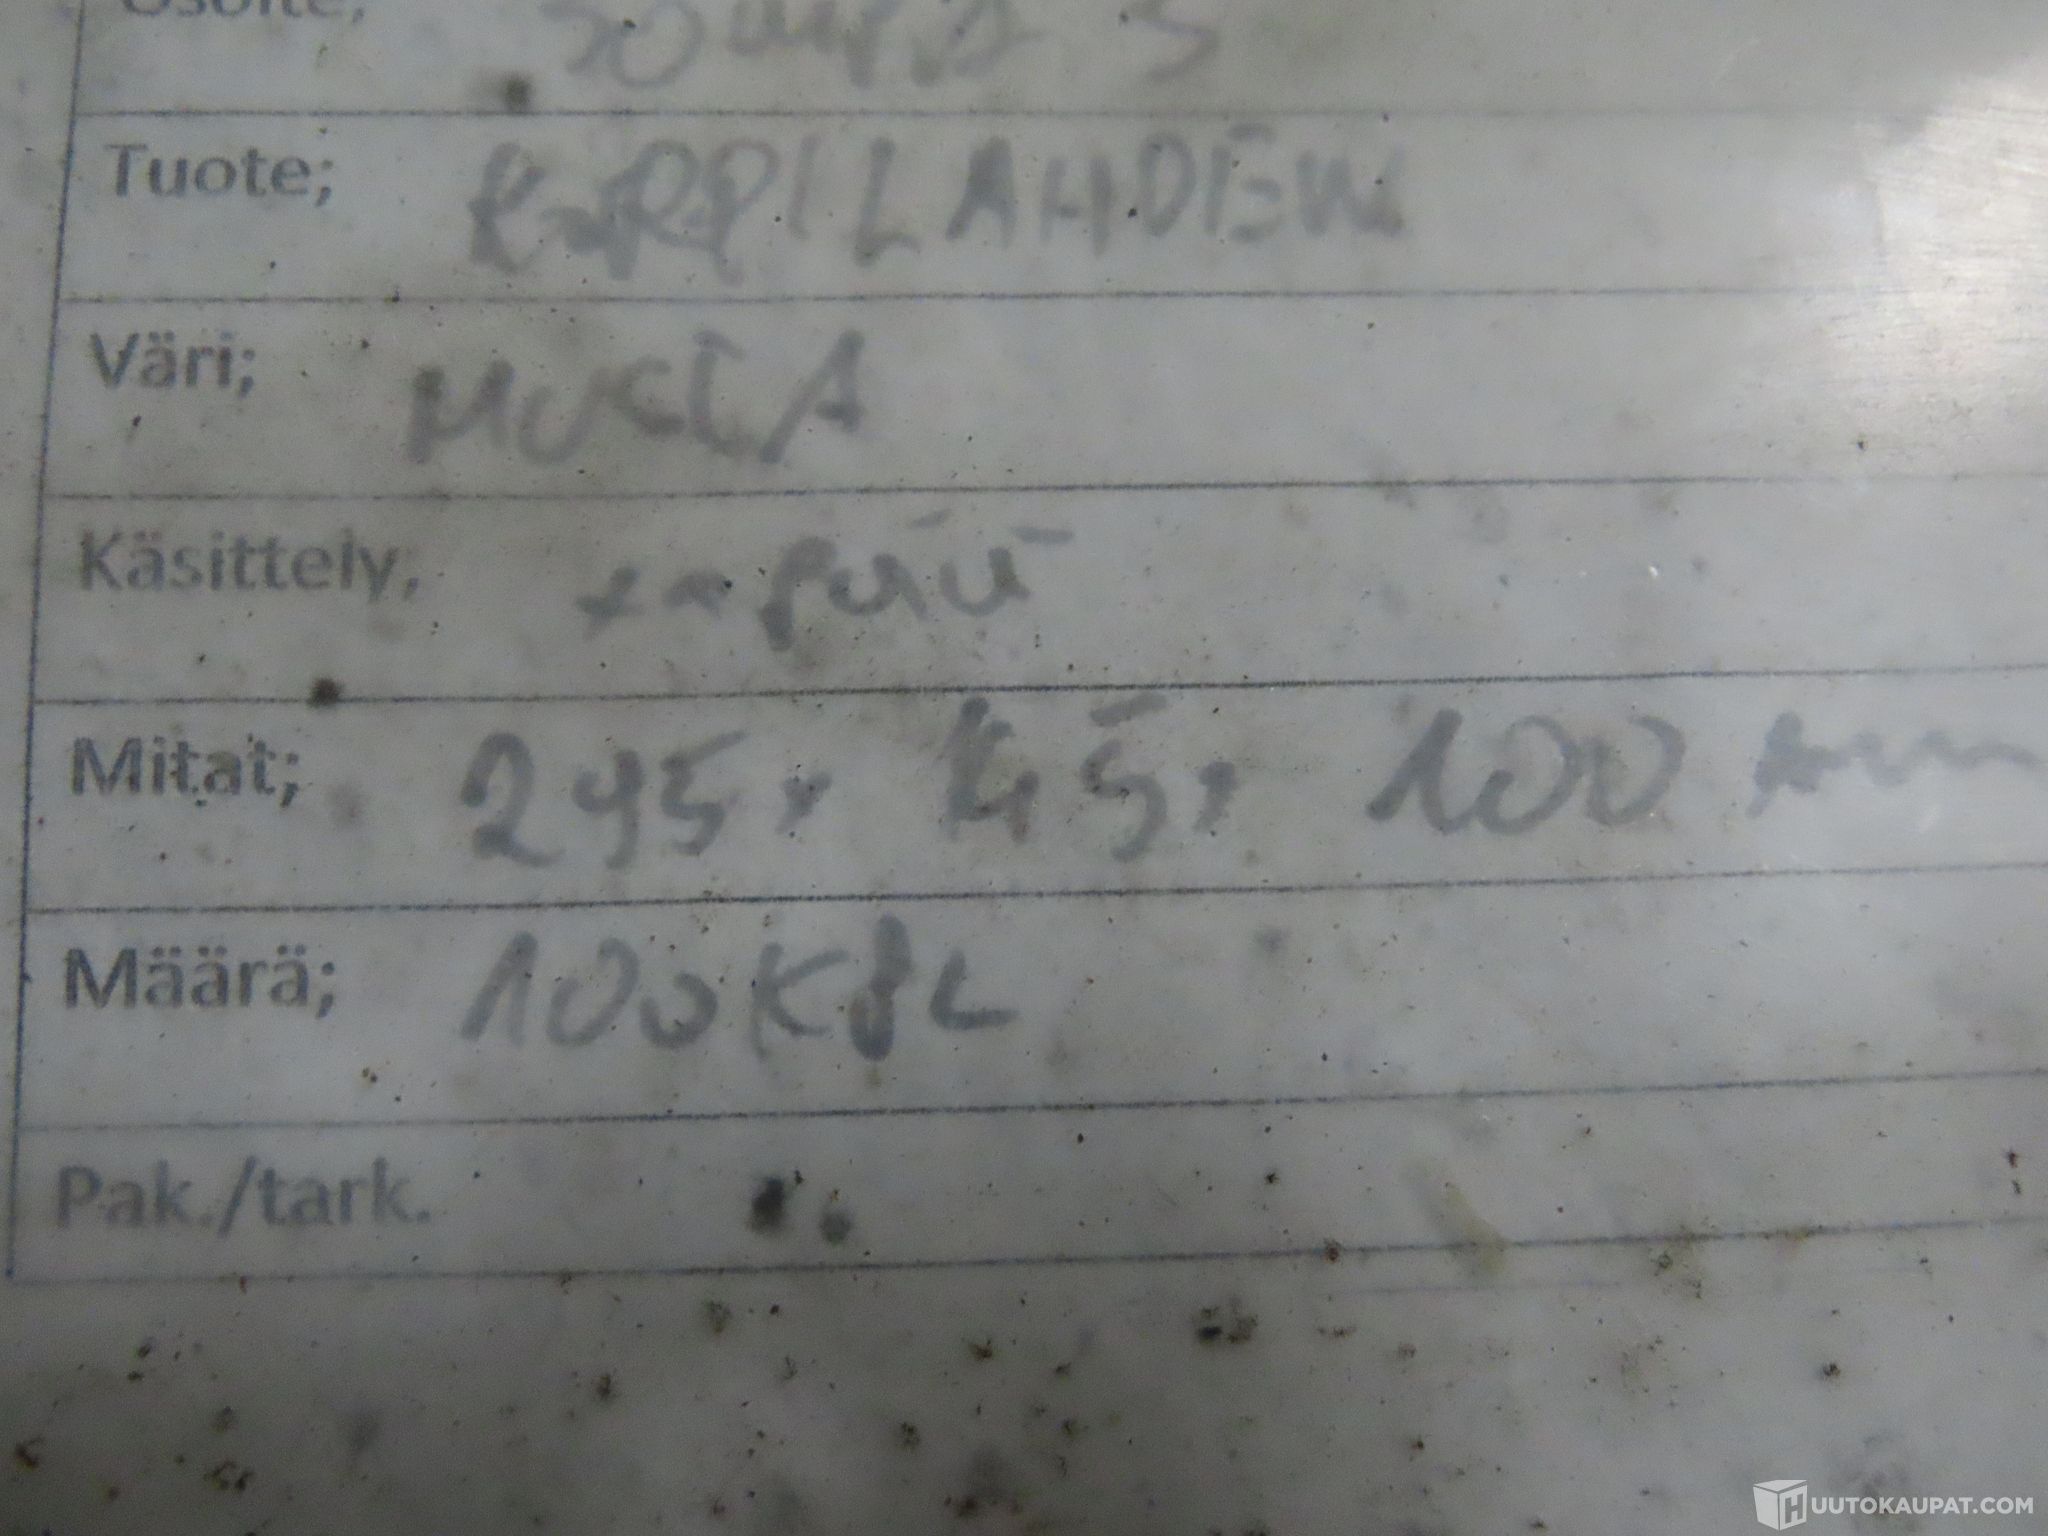 Osoite;
Tuote; KORPILAHDEN
Väri; MUSTA
Käsittely;
Mitat; 295 x 45 x 100 mm
Määrä; 100 KPL
Pak./tark.
HUUTOKAUPAT.COM